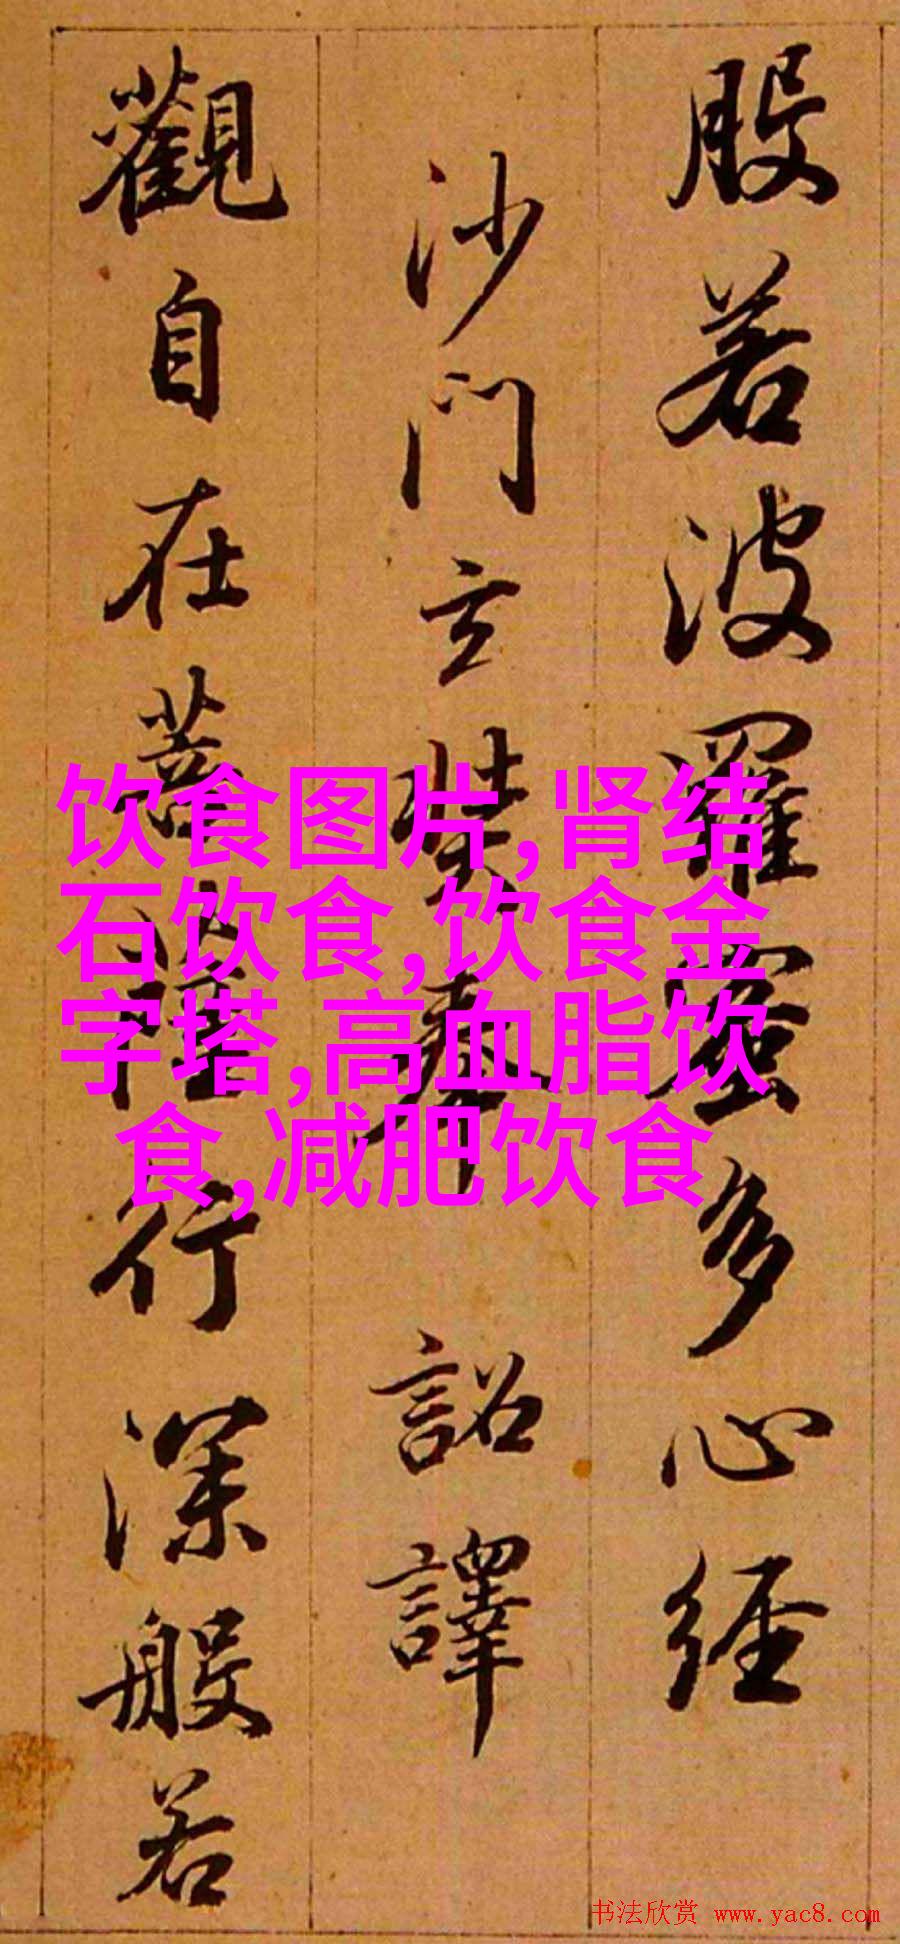 般若波羅蜜多心経
沙門玄奘奉 詔譯
觀自在菩薩行深般若
饮食图片,肾结
石饮食,饮食金
字塔,高血脂饮
食,减肥饮食
书法欣赏 www.yac8.com